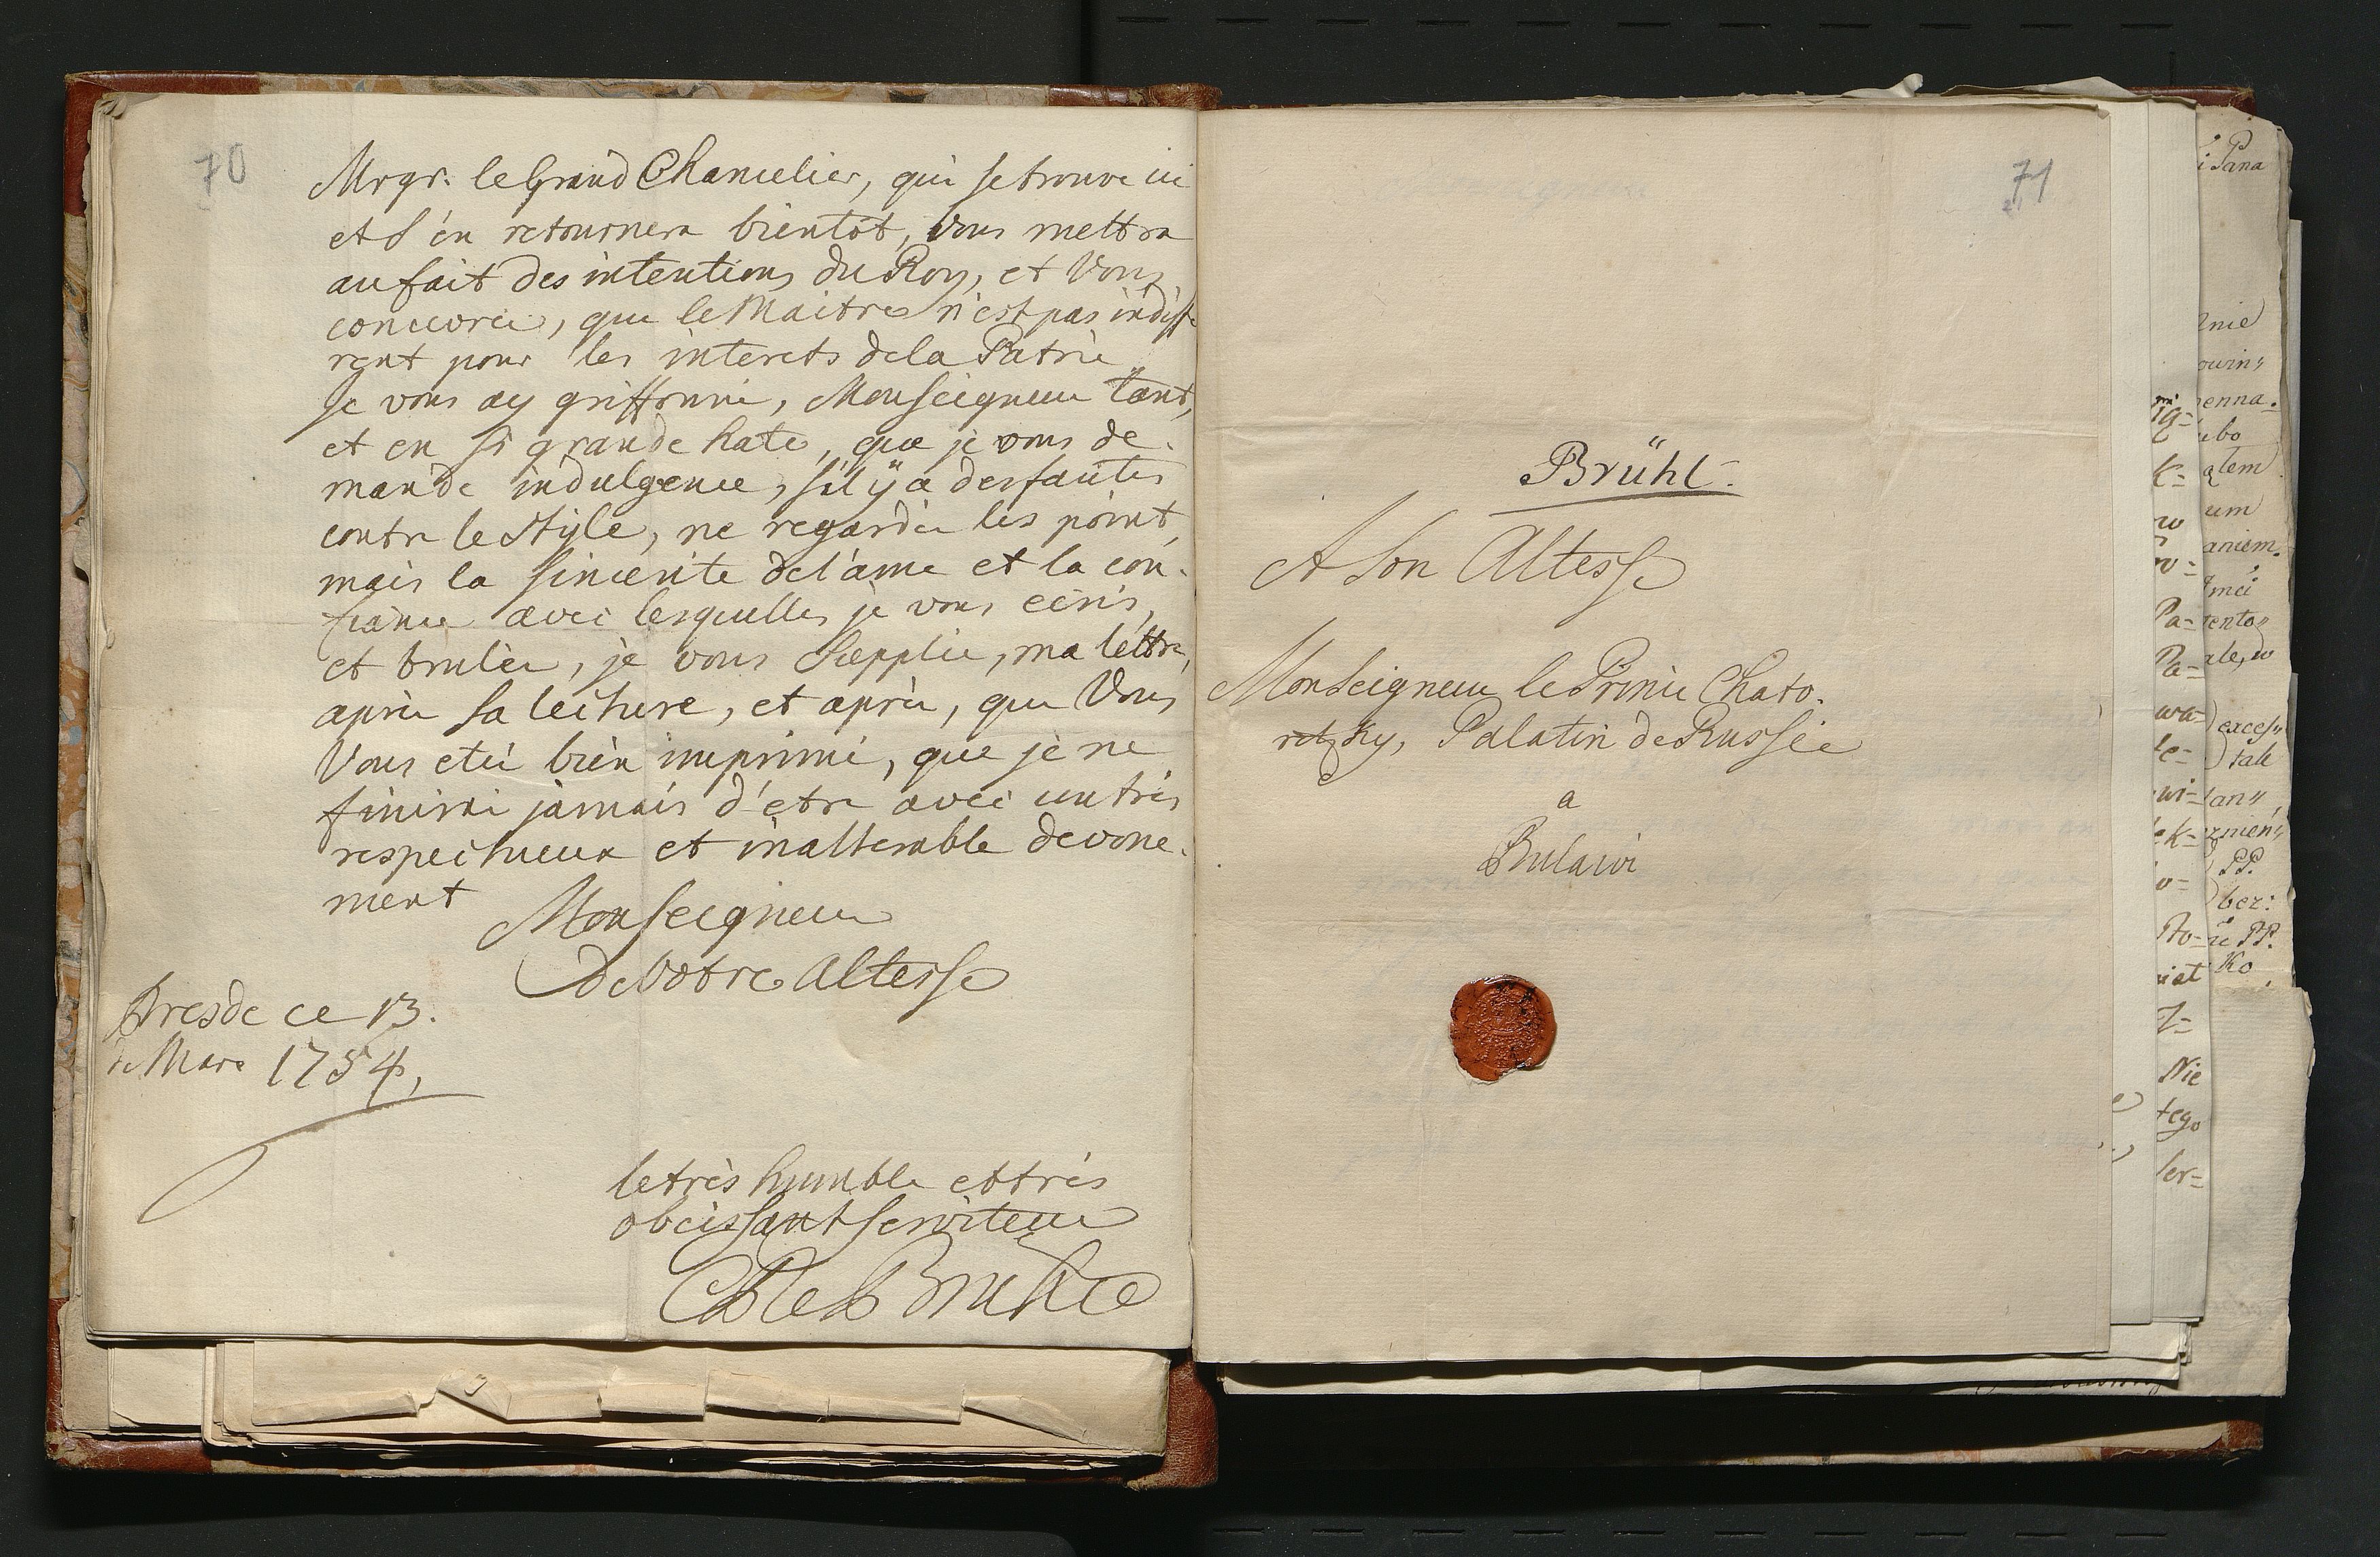 70
Mrgr. le Grand Chancelier, qui se trouve ici
et s'en retournera bientôt, vous mettra
au fait des intentions du Roy, et Vous
que le Maitre n'est pas indiffe
rent pour les interets de la Patrie
Je vous ay griffonné, Monseigneur tant,
et en si grande hate, que je vous de-
mande indulgence, s'il ÿ a des fautes
contre le style, ne regardés les point,
mais la sincerité de l'ame et la con-
fiance avec lesquelles je vous ecris,
et brulés, je vous supplie, ma lettre,
aprés sa lecture, et aprés, que Vous
Vous etés bien imprimé, que je ne
finirai jamais d'etre avec un trés
respectueux et inalterable devoue-
ment
Monseigneur
de Votre Altesse
Dresde ce 13.
de Mars 1754,
le très humble et très
obeissant serviteur
CDe Bruhl
71
Brühl.
A Son Altesse
Monseigneur le Prince Chato-
retzky, Palatin de Russie
a
Pulawi
i Pana
nie
owin"
enna.
ubo
atem
um
aniem.
mci
rento"
ale, w
exces"
tak
an"
rmien"
PP.
ber:
PP.
Ko
ig-
k-
w
Pa-
Pa-
wa-
le-
wi-
k-
Nie
tego
ler-